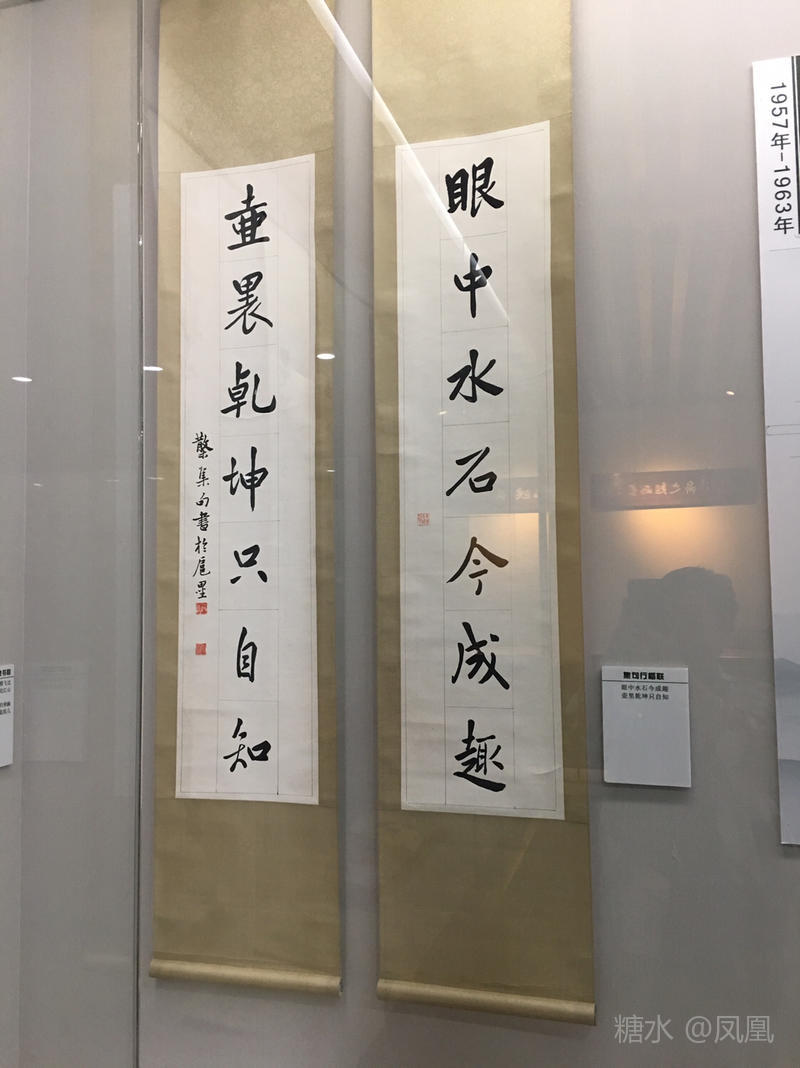 眼中水石今成趣
壶里乾坤只自知
集句書於
1957年-1963年
集句行楷联
眼中水石今成趣
壶里乾坤只自知
糖水 @凤凰